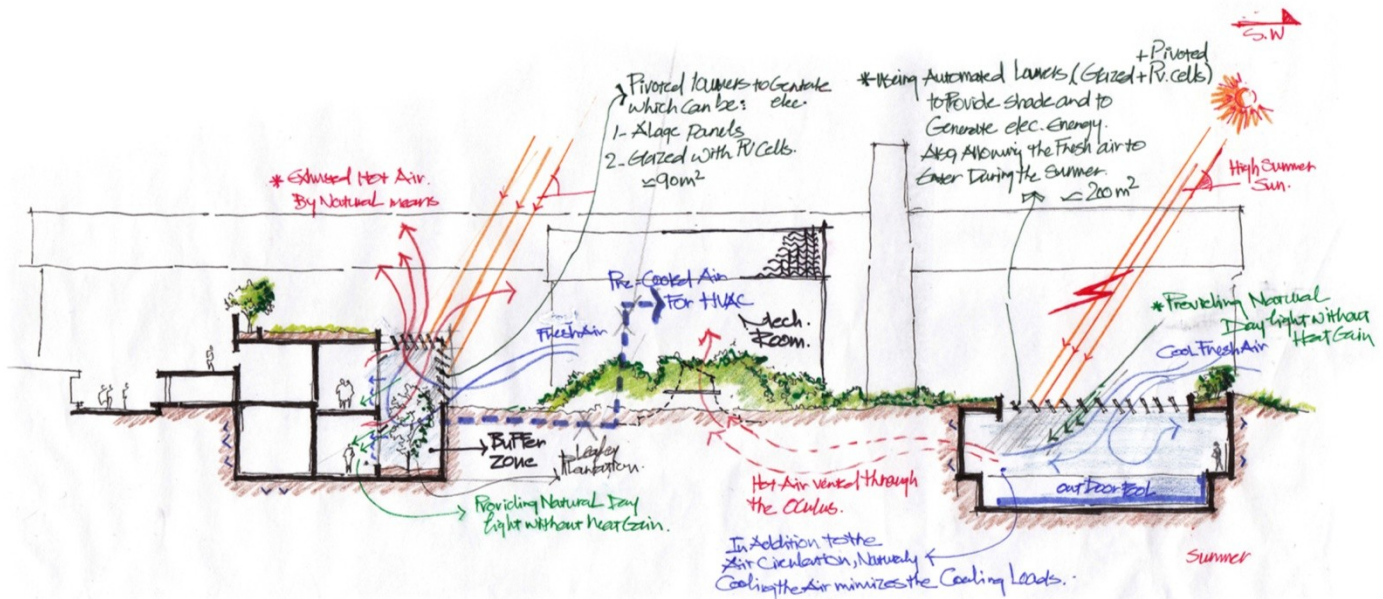 S.W
Pivoted louvers to Generate
which can be: elec.
1- Alage Panels
2- Glazed with PV Cells.
≃90m²
+Pivoted
*Using Automated Louvers (Glazed+PV.cells)
to Provide shade and to
Generate elec. Energy.
Also Allowing the Fresh air to
Enter During the Summer.
≃200m²
* Exhused Hot Air.
By Natural means
High Summer
Sun.
Pre-Cooled Air
For HVAC
Mech.
Room.
Fresh Air
* Providing Natural
Day light without
Heat Gain
Cool Fresh Air
Buffer
Zone
Leafey
Plantation.
Providing Natural Day
light without Heat Gain.
Hot Air vented through
the Oculus.
outDoor Pool
In Addition to the
Air Circulation, Naturaly
Cooling the Air minimizes the Cooling Loads.
Summer